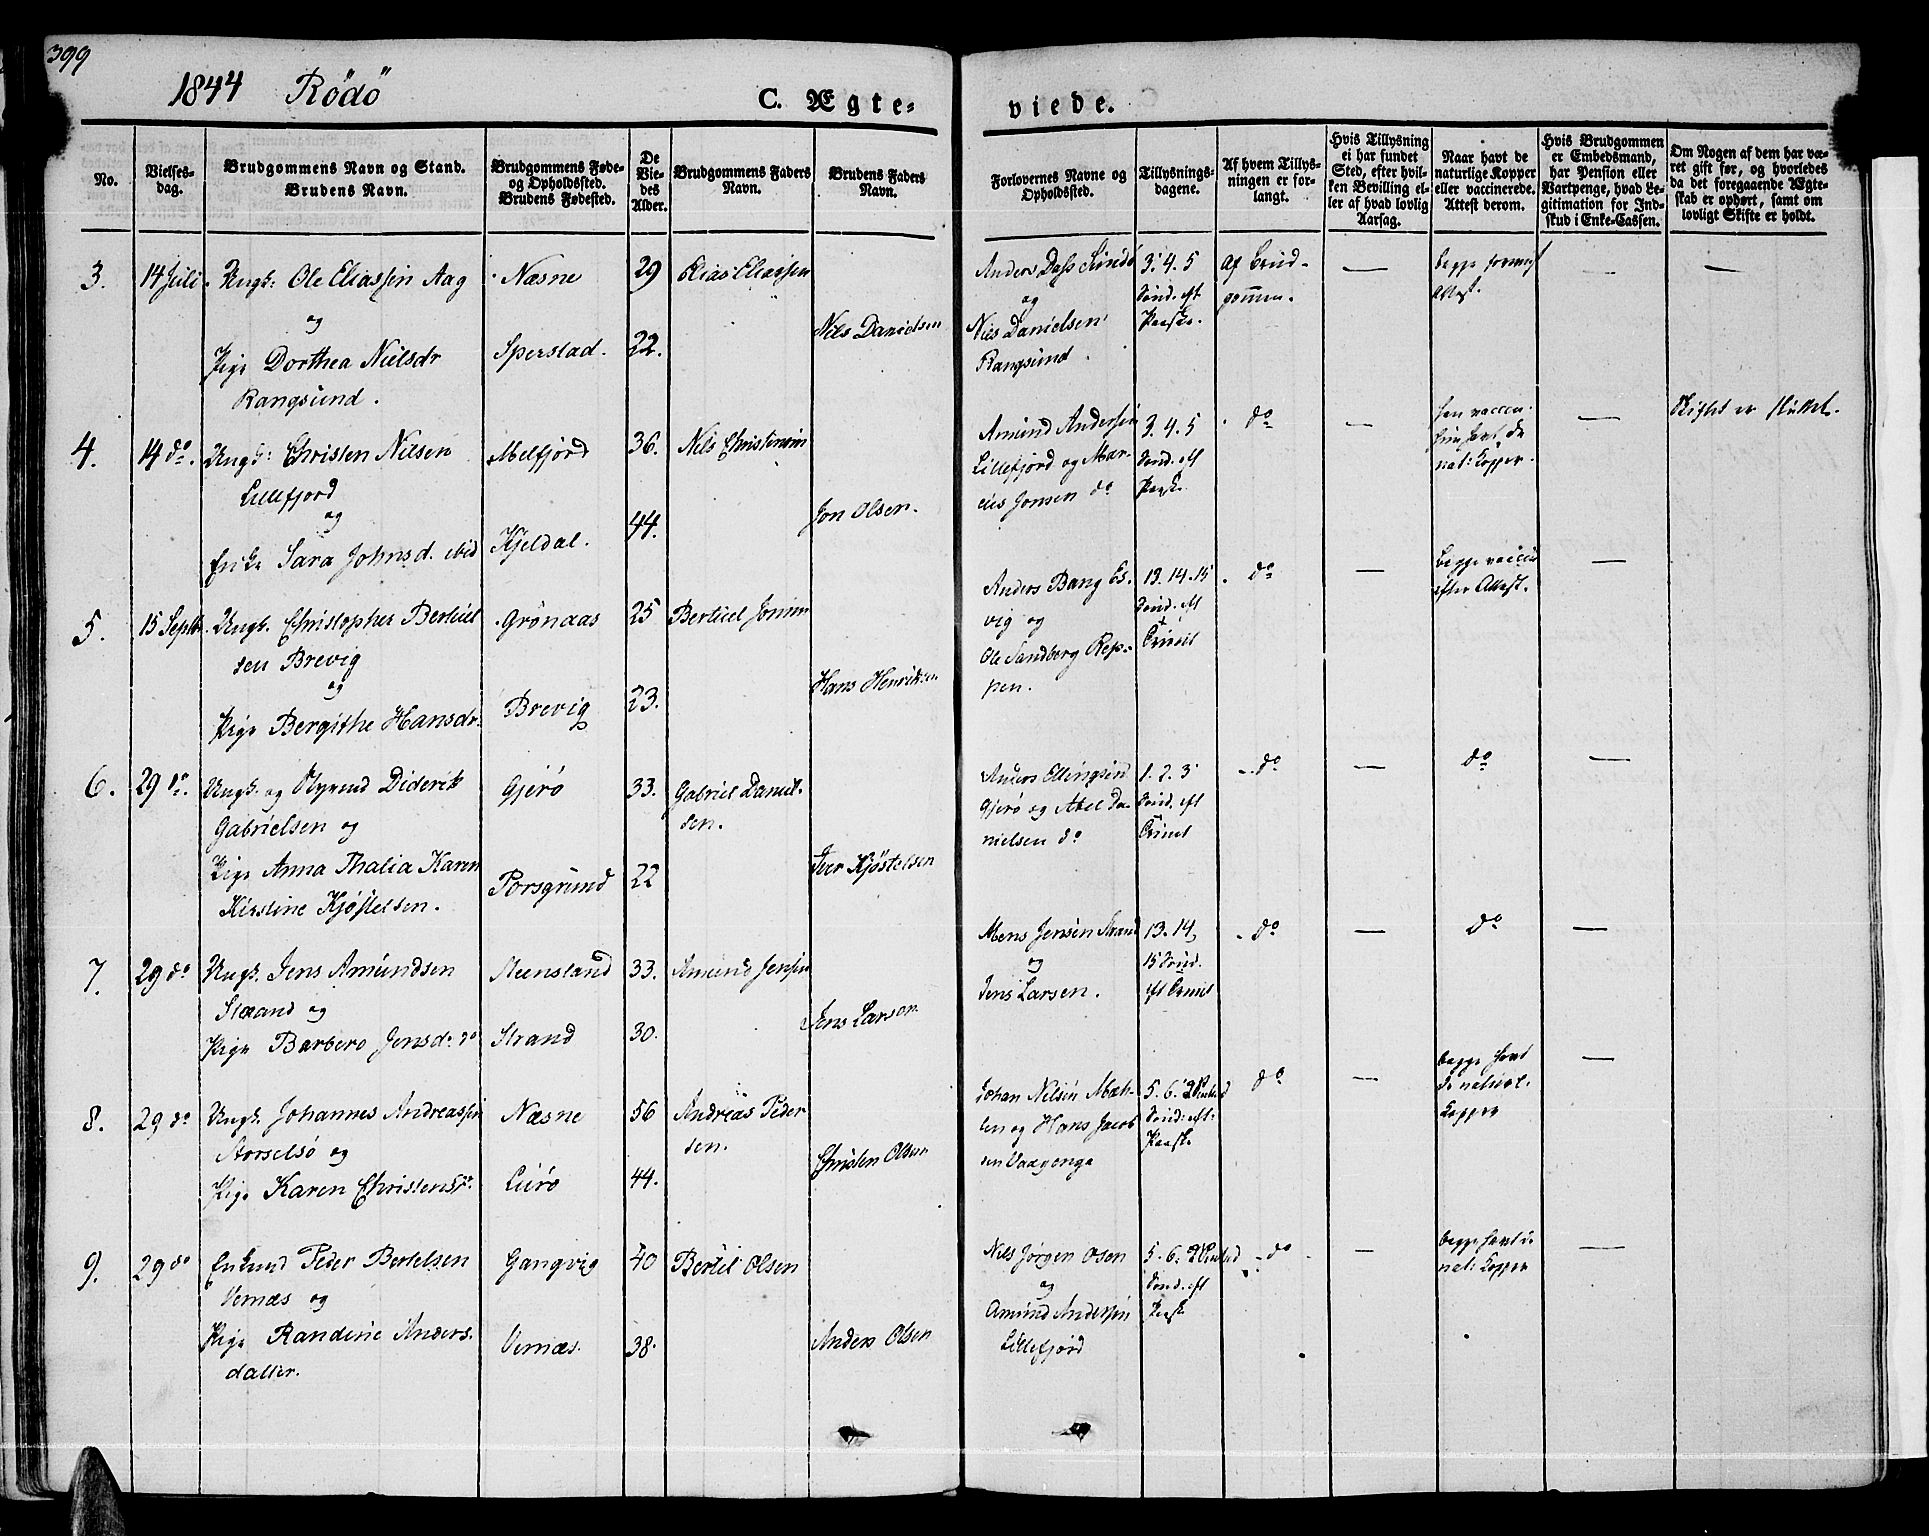 399
1844 Rödö
C. Ægte-
viede.
No.
Vielses-
dag.
Brudgommens Navn og Stand.
Brudens Navn.
Brudgommens Føde-
og Opholdssted.
Brudens Fødested.
De
Vie-
des
Alder.
Brudgommens Faders
Navn.
Brudens Faders
Navn.
Forlovernes Navne og
Opholdssted.
Tillysnings-
dagene.
Af hvem Tillys-
ningen er for-
langt.
Hvis Tillysning
ei har fundet
Sted, efter hvil-
ken Bevilling el-
ler af hvad lovlig
Aarsag.
Naar havt de
naturlige Kopper
eller vaccinerede.
Attest derom.
Hvis Brudgommen
er Embedsmand,
har Pension eller
Vartpenge, hvad Le-
gitimation for Ind-
skud i Enke-Cassen.
Om Nogen af dem har væ-
ret gift før, og hvorledes
da det foregaaende Ægte-
skab er ophørt, samt om
lovligt Skifte er holdt.
3. 14 Juli. Ungk: Ole Eliassen Aag
og
Pige Dorthea Nielsdr
Rangsund.
Næsne
Sperstad.
29
22.
Elias Eliassen
Niels Danielsen
Anders Dass Sundö
og
Niels Danielsen
Rangsund.
3. 4. 5
Sönd. eft.
Paaske.
Af Brud-
gommen.
—
begge
Attest.
—
—
4. 14 do. Ungk: Christen Nilsen
Lillefjord
og
Enke Sara Johnsd. ibid
Melfjord
Kjeldal.
36.
44.
Nils Christensen
Jon Olsen.
Amund Andersen
Lillefjord og Mar-
cus Jonsen do
3. 4. 5
Sönd. eft
Paask.
do
—
han vaccin.
hun havt de
nat: Kopper.
—
Skiftet er sluttet.
5. 15 Septbr. Ungk. Christopher Bertel
sen Brevig
og
Pige Bergithe Hansdr.
Grönaas
Brevig
25
23.
Bertel Jonsen
Hans Henriksen
Anders Bang Es-
vig og
Ole Sandberg Rep-
pen.
13. 14. 15
Sönd. eft
Trinit
do
—
begge vaccin
efter Attest.
—
6. 29 do. Ungk. og Diderik
Gabrielsen og
Pige Anna Thalia Karen
Kirstine Kjöstelsen.
Gjerö
Porsgrund
33.
22
Gabriel Daniel-
sen.
Iver Kjöstelsen
Anders Ellingsen
Gjerö og Abel Da-
nielsen do
1. 2. 3
Sönd. eft
Trinit
do
—
do
—
7. 29 do Ungk. Jens Amundsen
Strand og
Pige Barbero Jensd. do
Steensland
Strand
33.
30.
Amund Jensen
Jens Larsen
Mons Jensen Strand
og
Jens Larsen.
13. 14,
15 Sönd.
eft Trinit
do
—
do
—
8. 29 do Ungk. Johannes Andreassen
Storselsö og
Pige Karen Christensdr.
Næsne
Lurö
56
44.
Andreas Peder
sen.
Christen Olsen
Johan Nilsen Mæh-
len og Hans Jacob
sen Vaagenga
5. 6.
Sönd: eft:
Paaske
do
—
begge havt
de naturl.
Kopper
—
9. 29 do Enkemd Peder Bertelsen
Vernæs og
Pige Randine Anders-
datter.
Gangvig
Vernæs.
40
38.
Bertel Olsen
Anders Olsen
Nils Jörgen Olsen
og
Amund Andersen
Lillefjord
5. 6.
Sönd. eft
Paaske
do
—
begge havt de
nat: Kopper
—